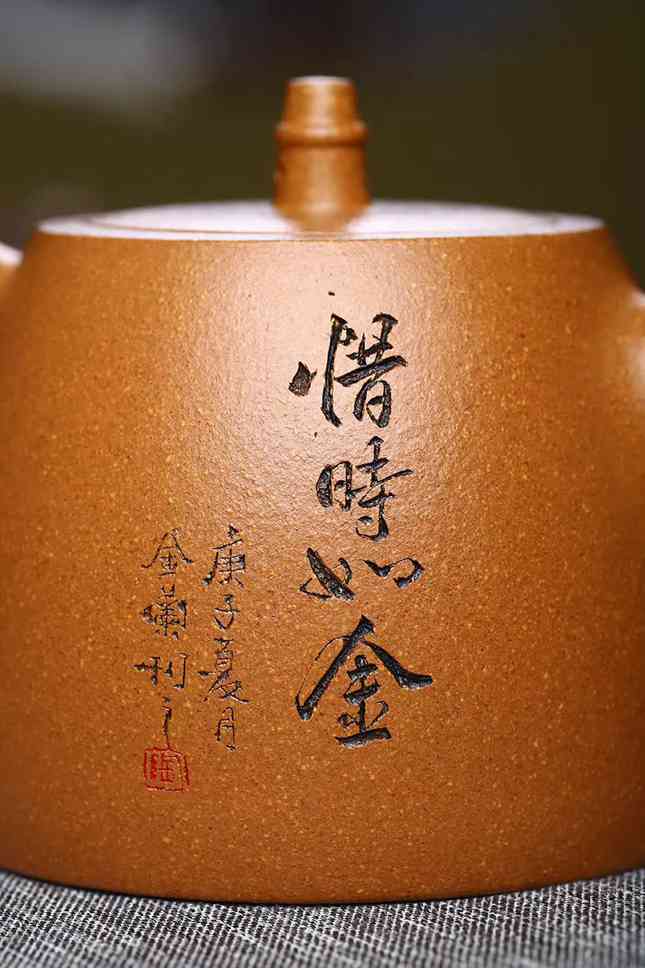 惜時如金
庚子夏月
金蘭刻之
陶